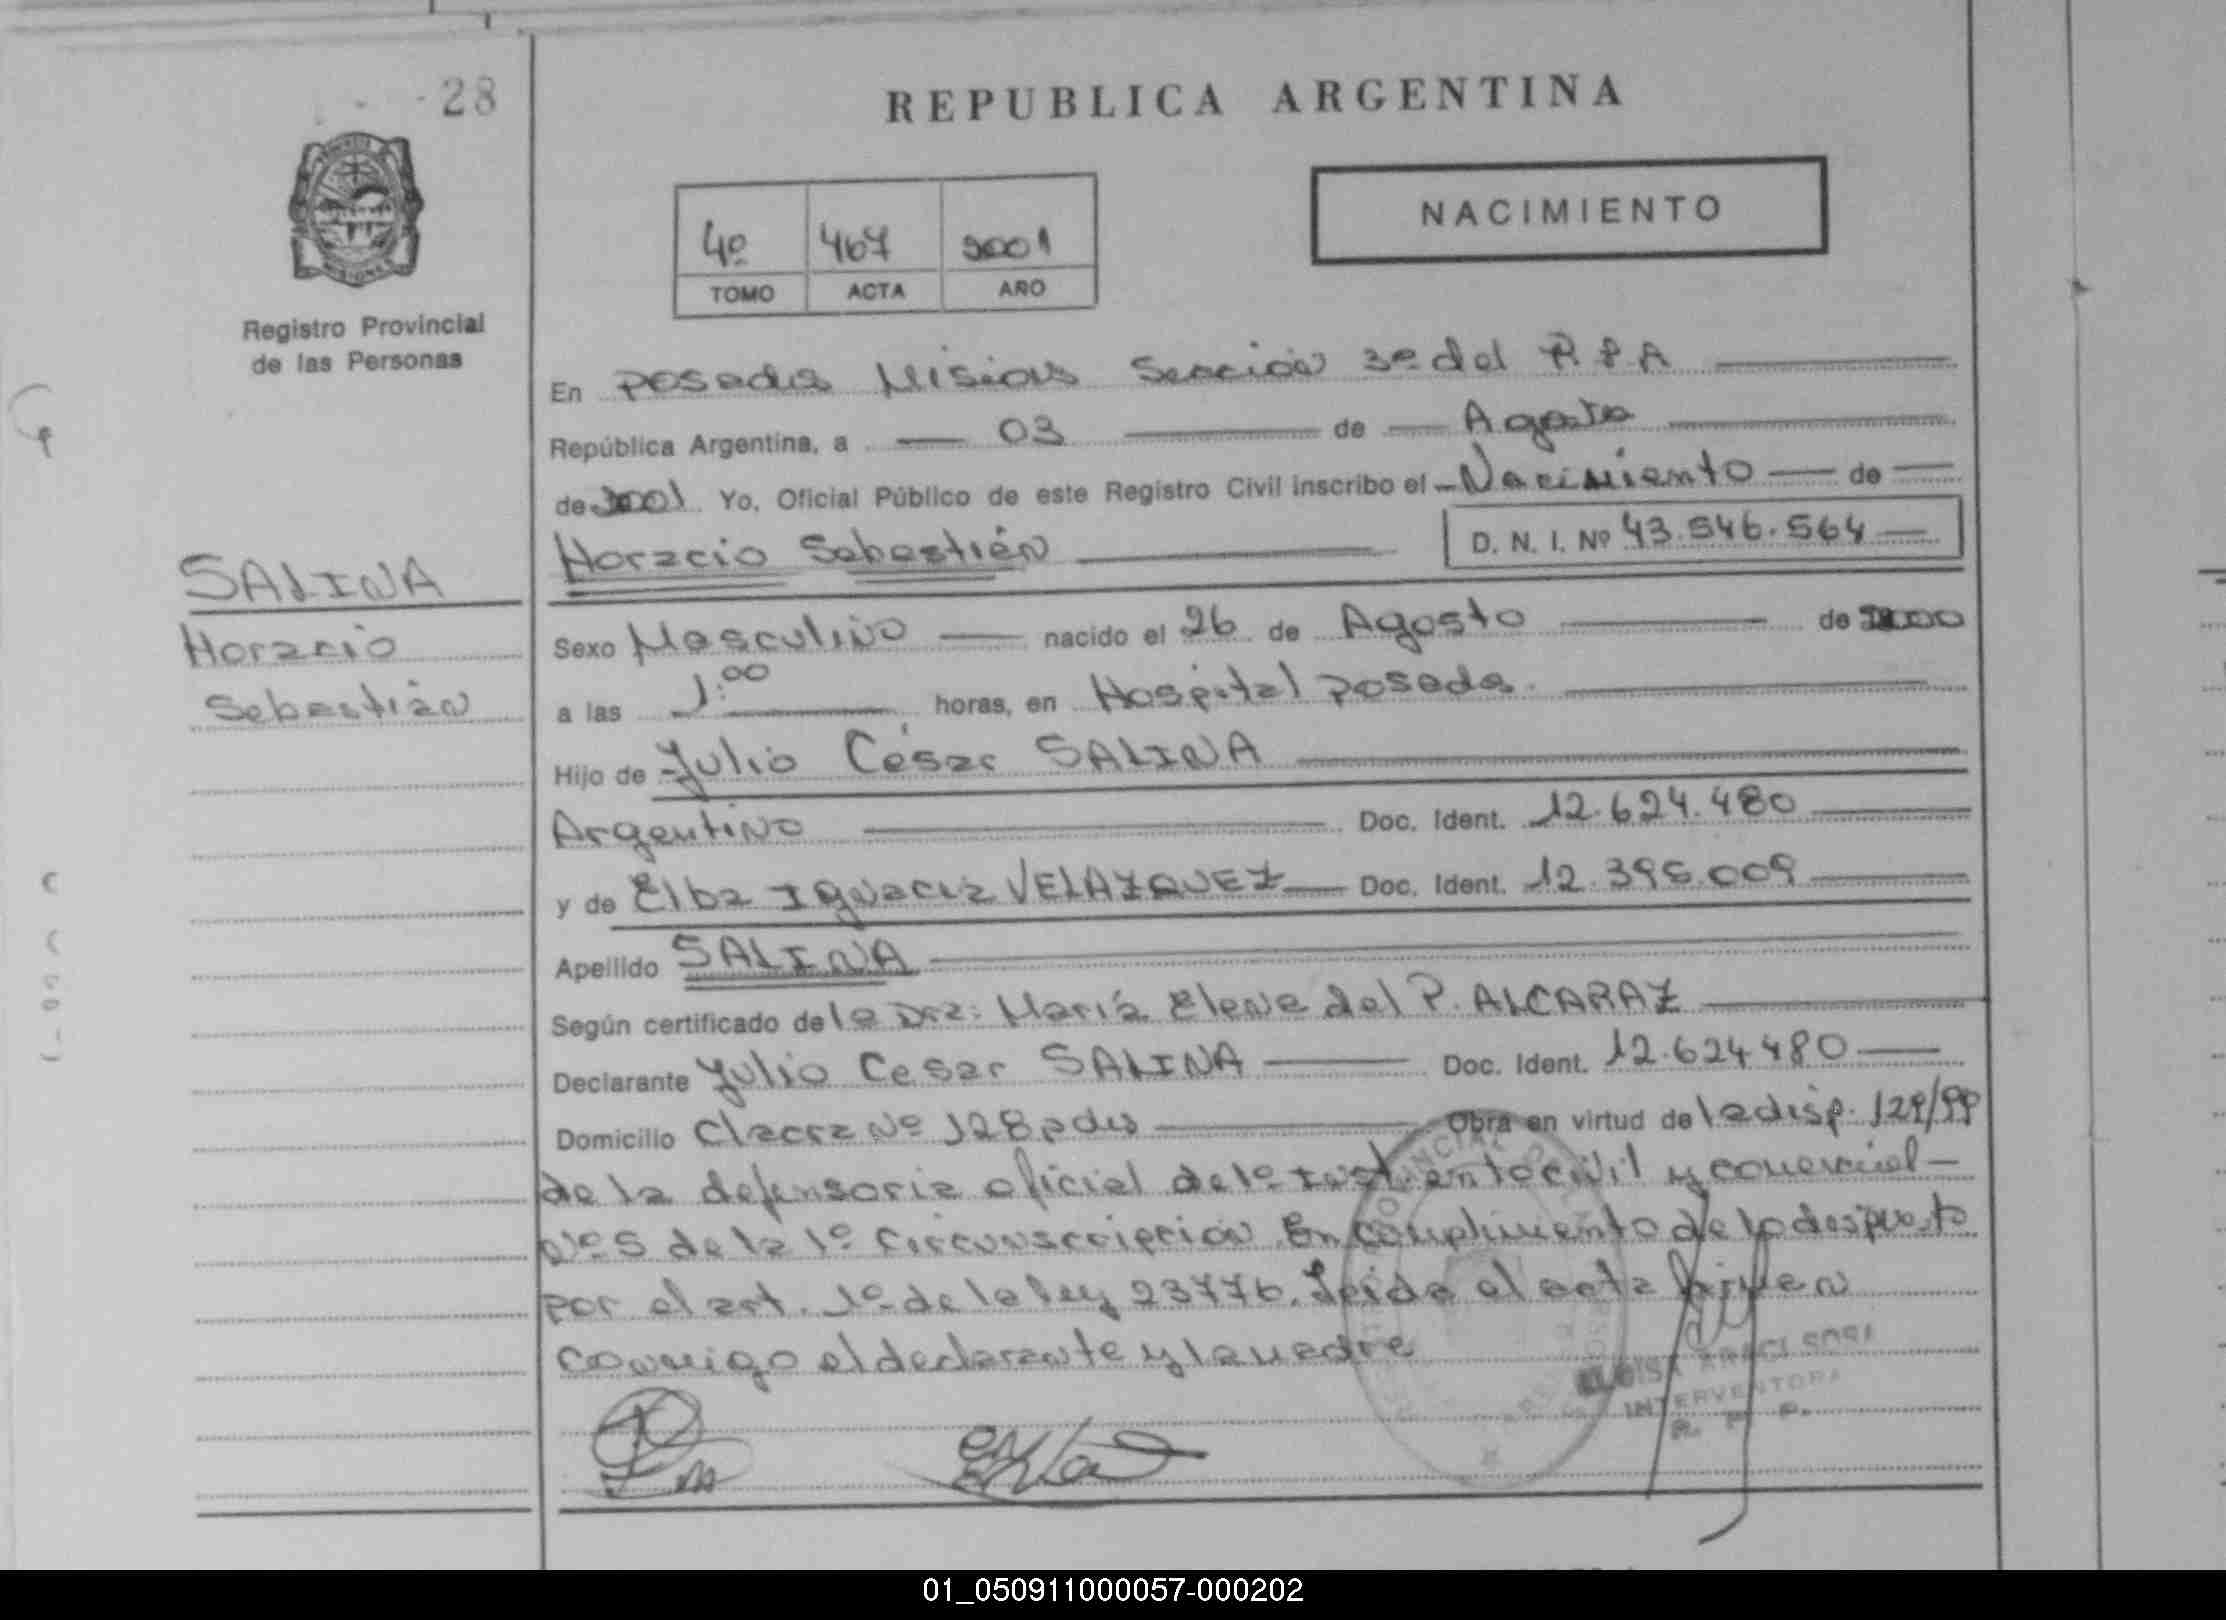 28
REPUBLICA ARGENTINA
NACIMIENTO
4º 467 2001
TOMO ACTA AÑO
Registro Provincial
de las Personas
En Posadas Misiones Sección 3º del R.P.A
República Argentina, a 03 de Agosto
de 2001. Yo, Oficial Público de este Registro Civil inscribo el Nacimiento de
Horacio Sebastián D. N. I. Nº 43.546.564
SALINA
Horacio
Sebastián
Sexo Masculino nacido el 26 de Agosto de 2000
a las 1:00 horas, en Hospital Posadas.
Hijo de Julio César SALINA
Argentino Doc. Ident. 12.624.480
y de Elba Ignacia VELAZQUEZ Doc. Ident. 12.395.009
Apellido SALINA
Según certificado de la Dra: María Elena del P. ALCARAZ
Declarante Julio Cesar SALINA Doc. Ident. 12.624.480
Domicilio Chacra Nº 128 pdas Obra en virtud de la disp. 129/99
de la defensoria oficial de 1º Inst. en lo civil y comercial
Nº 5 de la 1º circunscripción. En cumplimiento de lo dispuesto
por el art. 1º de la ley 23776. Leida el acta firman
conmigo el declarante y la madre
INTERVENTORA
R. P. P.
01_050911000057-000202